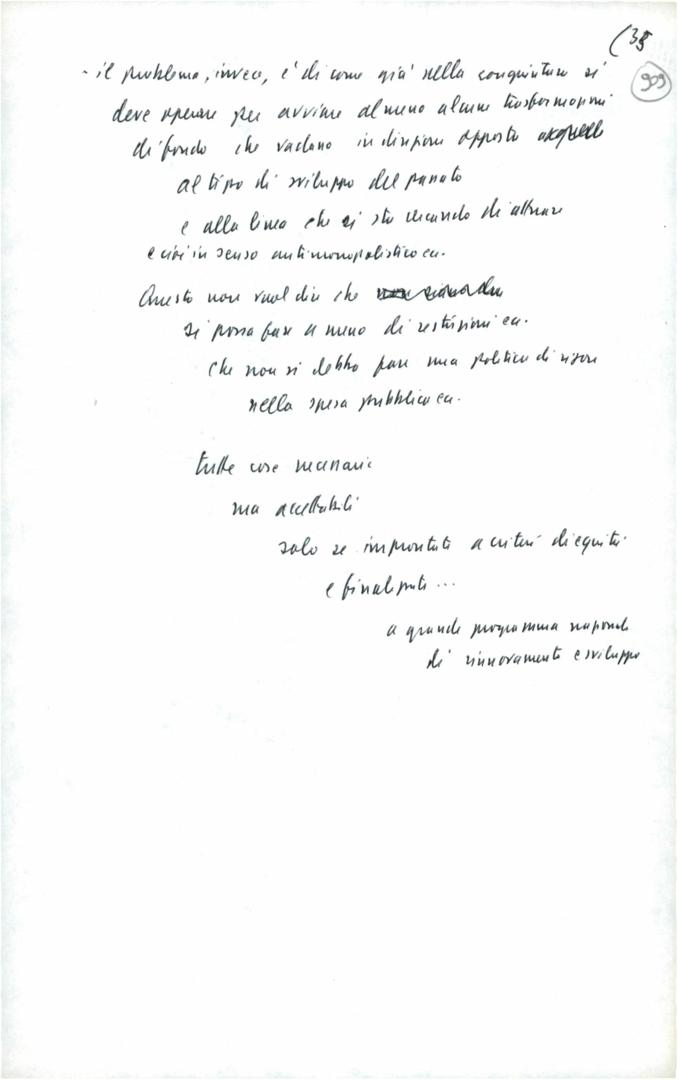 (35
909
- il problema, invece, è di come già nella congiuntura si
deve operare per avviare almeno alcune trasformazioni
di fondo che vadano in direzione opposta
al tipo di sviluppo del passato
e alla linea che si sta cercando di attuare
e cioè in senso antimonopolistico ecc.
Questo non vuol dire che
si possa fare a meno di restrizioni ecc.
che non si debba fare una politica di rigore
nella spesa pubblica ecc.
tutte cose necessarie
ma accettabili
solo se improntate a criteri di equità
e finalizzate ...
a grande programma nazionale
di rinnovamento e sviluppo